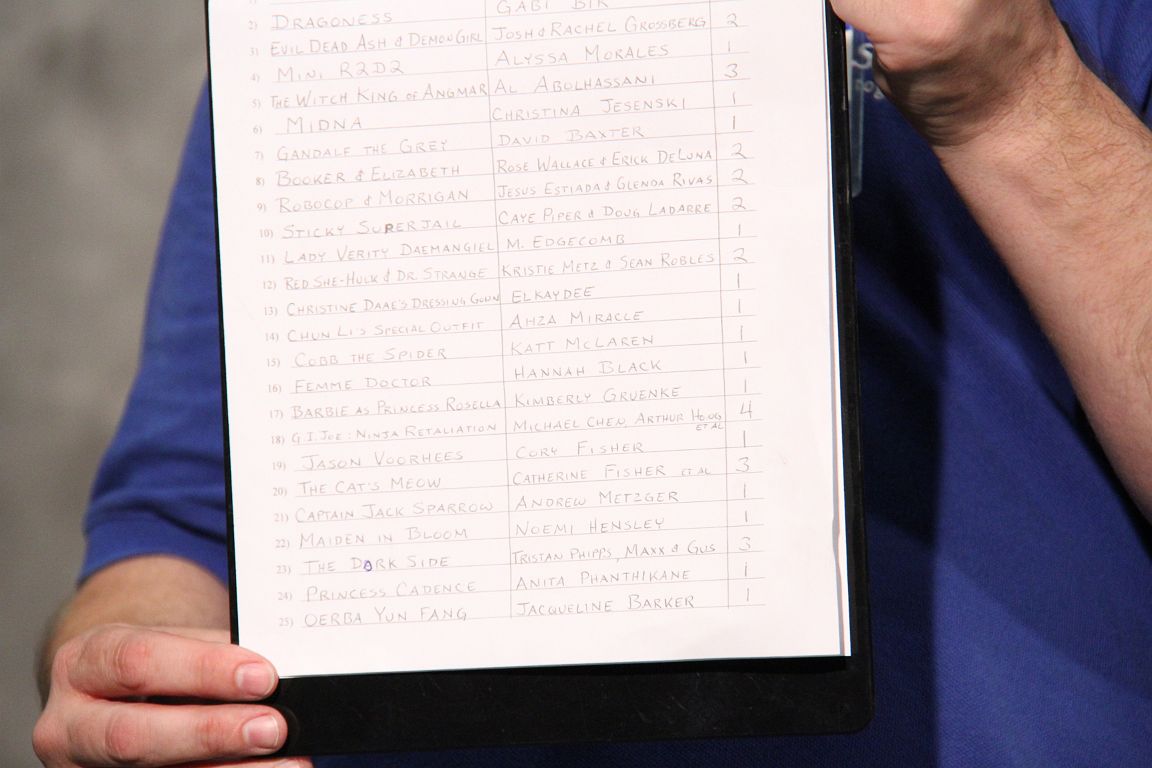 2) DRAGONESS GABI BIR
3) EVIL DEAD ASH & DEMON GIRL JOSH & RACHEL GROSSBERG 2
4) MINI R2D2 ALYSSA MORALES 1
5) THE WITCH KING OF ANGMAR AL ABOLHASSANI 3
6) MIDNA CHRISTINA JESENSKI 1
7) GANDALF THE GREY DAVID BAXTER 1
8) BOOKER & ELIZABETH ROSE WALLACE & ERICK DELUNA 2
9) ROBOCOP & MORRIGAN JESUS ESTIADA & GLENDA RIVAS 2
10) STICKY SUPERJAIL CAYE PIPER & DOUG LADARRE 2
11) LADY VERITY DAEMANGIEL M. EDGECOMB 1
12) RED SHE-HULK & DR. STRANGE KRISTIE METZ & SEAN ROBLES 2
13) CHRISTINE DAAE'S DRESSING GOWN ELKAYDEE 1
14) CHUN LI'S SPECIAL OUTFIT AHZA MIRACLE 1
15) COBB THE SPIDER KATT MCLAREN 1
16) FEMME DOCTOR HANNAH BLACK 1
17) BARBIE AS PRINCESS ROSELLA KIMBERLY GRUENKE 1
18) G.I. JOE: NINJA RETALIATION MICHAEL CHEN, ARTHUR ET AL 4
19) JASON VOORHEES CORY FISHER 1
20) THE CAT'S MEOW CATHERINE FISHER ET AL 3
21) CAPTAIN JACK SPARROW ANDREW METZGER 1
22) MAIDEN IN BLOOM NOEMI HENSLEY 1
23) THE DARK SIDE TRISTAN PHIPPS, MAXX & GUS 3
24) PRINCESS CADENCE ANITA PHANTHIKANE 1
25) OERBA YUN FANG JACQUELINE BARKER 1